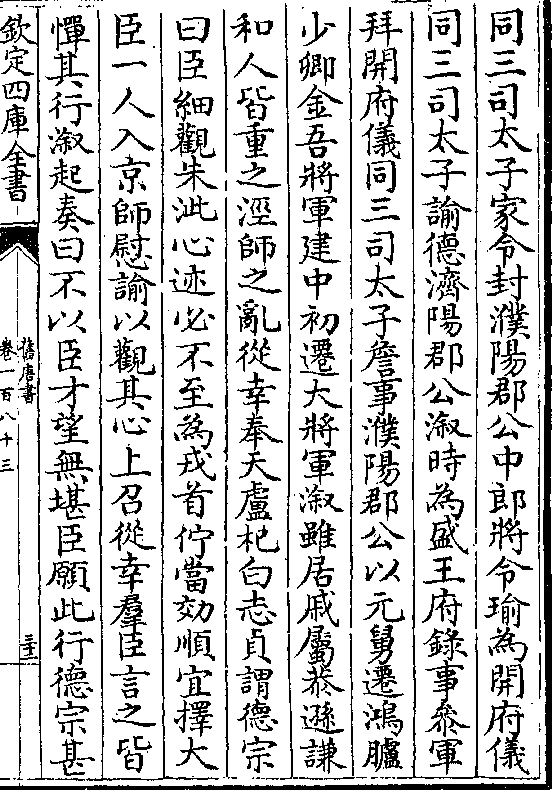 同三司太子家令封濮陽郡公中郎將令瑜為開府儀
同三司太子諭德濟陽郡公溆時為盛王府錄事叅軍
拜開府儀同三司太子詹事濮陽郡公以元舅遷鴻臚
少卿金吾將軍建中初遷大將軍溆雖居戚屬恭遜謙
和人皆重之涇師之亂從幸奉天盧杞白志貞謂德宗
曰臣細觀朱泚心迹必不至為戎首佇當効順宜擇大
臣一人入京師慰諭以觀其心上召從幸羣臣言之皆
憚其行溆起奏曰不以臣才望無堪臣願此行德宗甚
欽定四庫全書
舊唐書
卷一百八十三